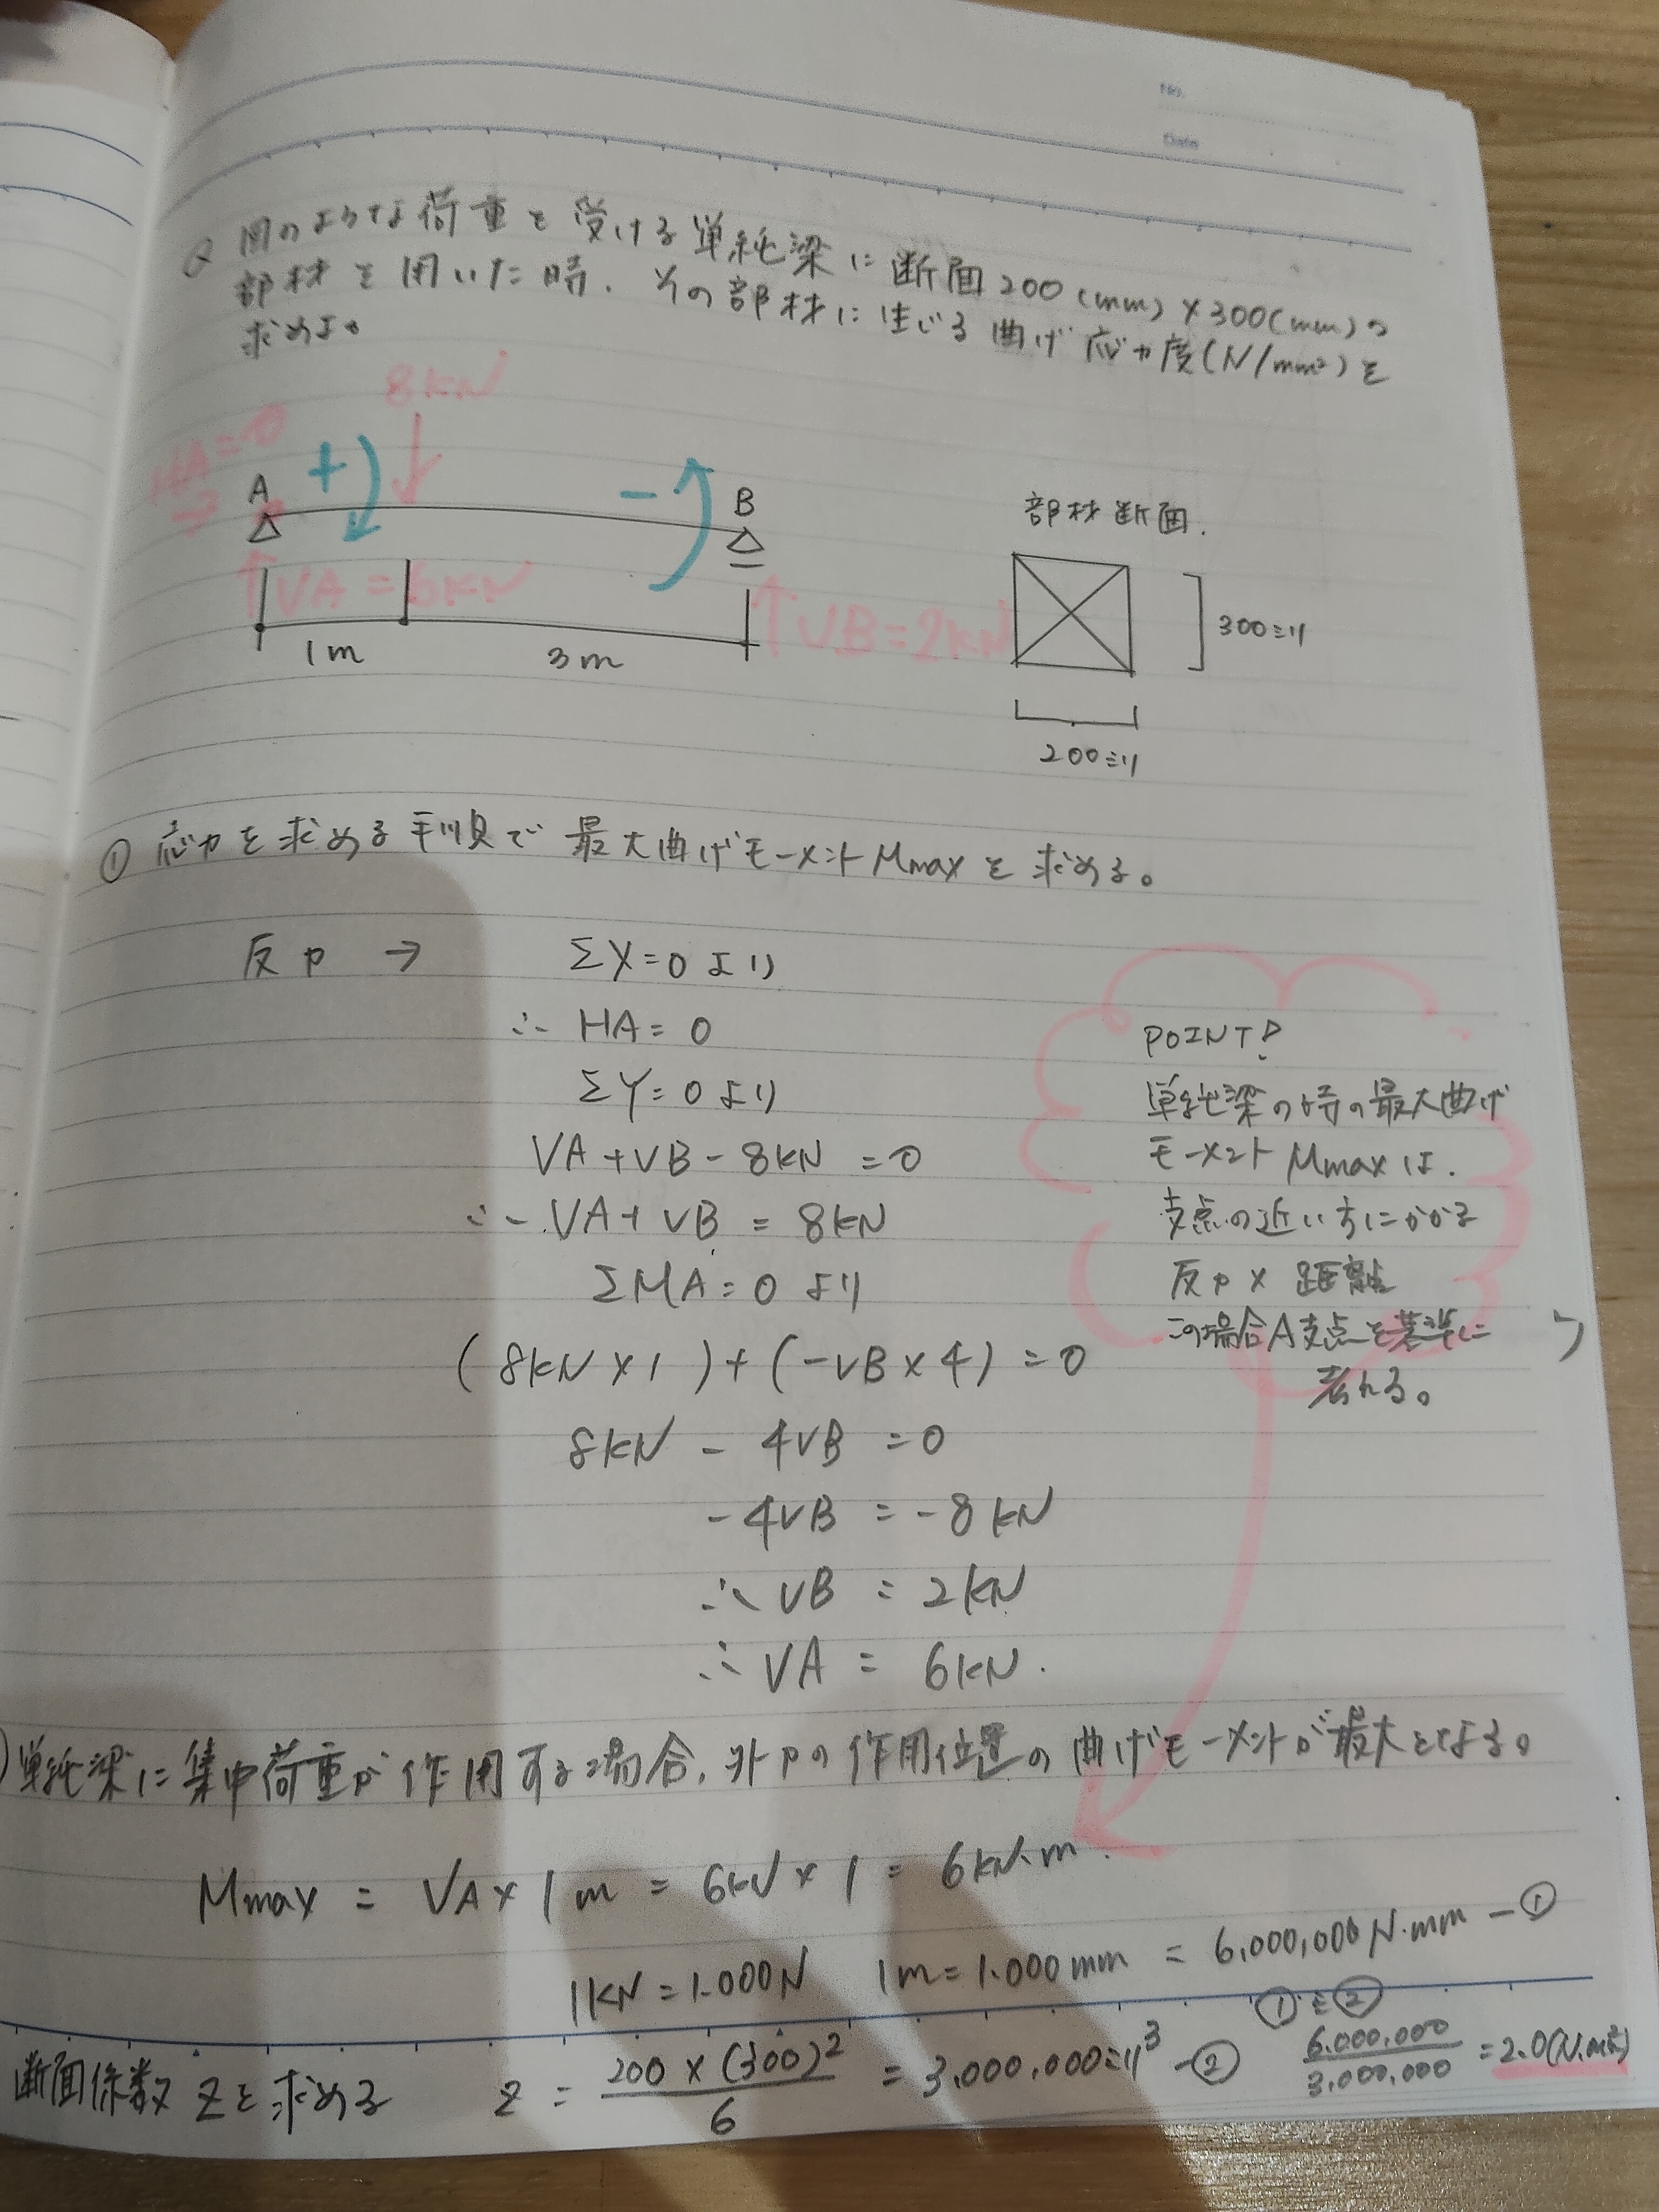 No.
Date
Q 図のような荷重を受ける単純梁に断面200(mm)×300(mm)の
部材を用いた時、その部材に生じる曲げ応力度(N/mm²)を
求めよ。
8kN
HA=0
→
A
+
-
B
↑VA=6kN
↑VB=2kN
1m
3m
部材断面.
300ミリ
200ミリ
① 応力を求める手順で最大曲げモーメントMmaxを求める。
反力 → ΣX=0より
∴ HA=0
ΣY=0より
VA+VB-8kN=0
∴ VA+VB=8kN
ΣMA=0より
(8kN×1)+(-VB×4)=0
8kN-4VB=0
-4VB=-8kN
∴ VB=2kN
∴ VA=6kN.
POINT!
単純梁の時の最大曲げ
モーメントMmaxは.
支点の近い方にかかる
反力×距離
この場合A支点を基準に
考える。
)単純梁に集中荷重が作用する場合、外力の作用位置の曲げモーメントが最大となる。
Mmax = VA×1m = 6kN×1 = 6kN.m
1kN=1.000N 1m=1.000mm = 6,000,000N.mm -①
断面係数Zを求める Z = 200×(300)²/6 = 3.000.000ミリ³ -②
①÷②
6.000.000/3.000.000 = 2.0(N.m²)